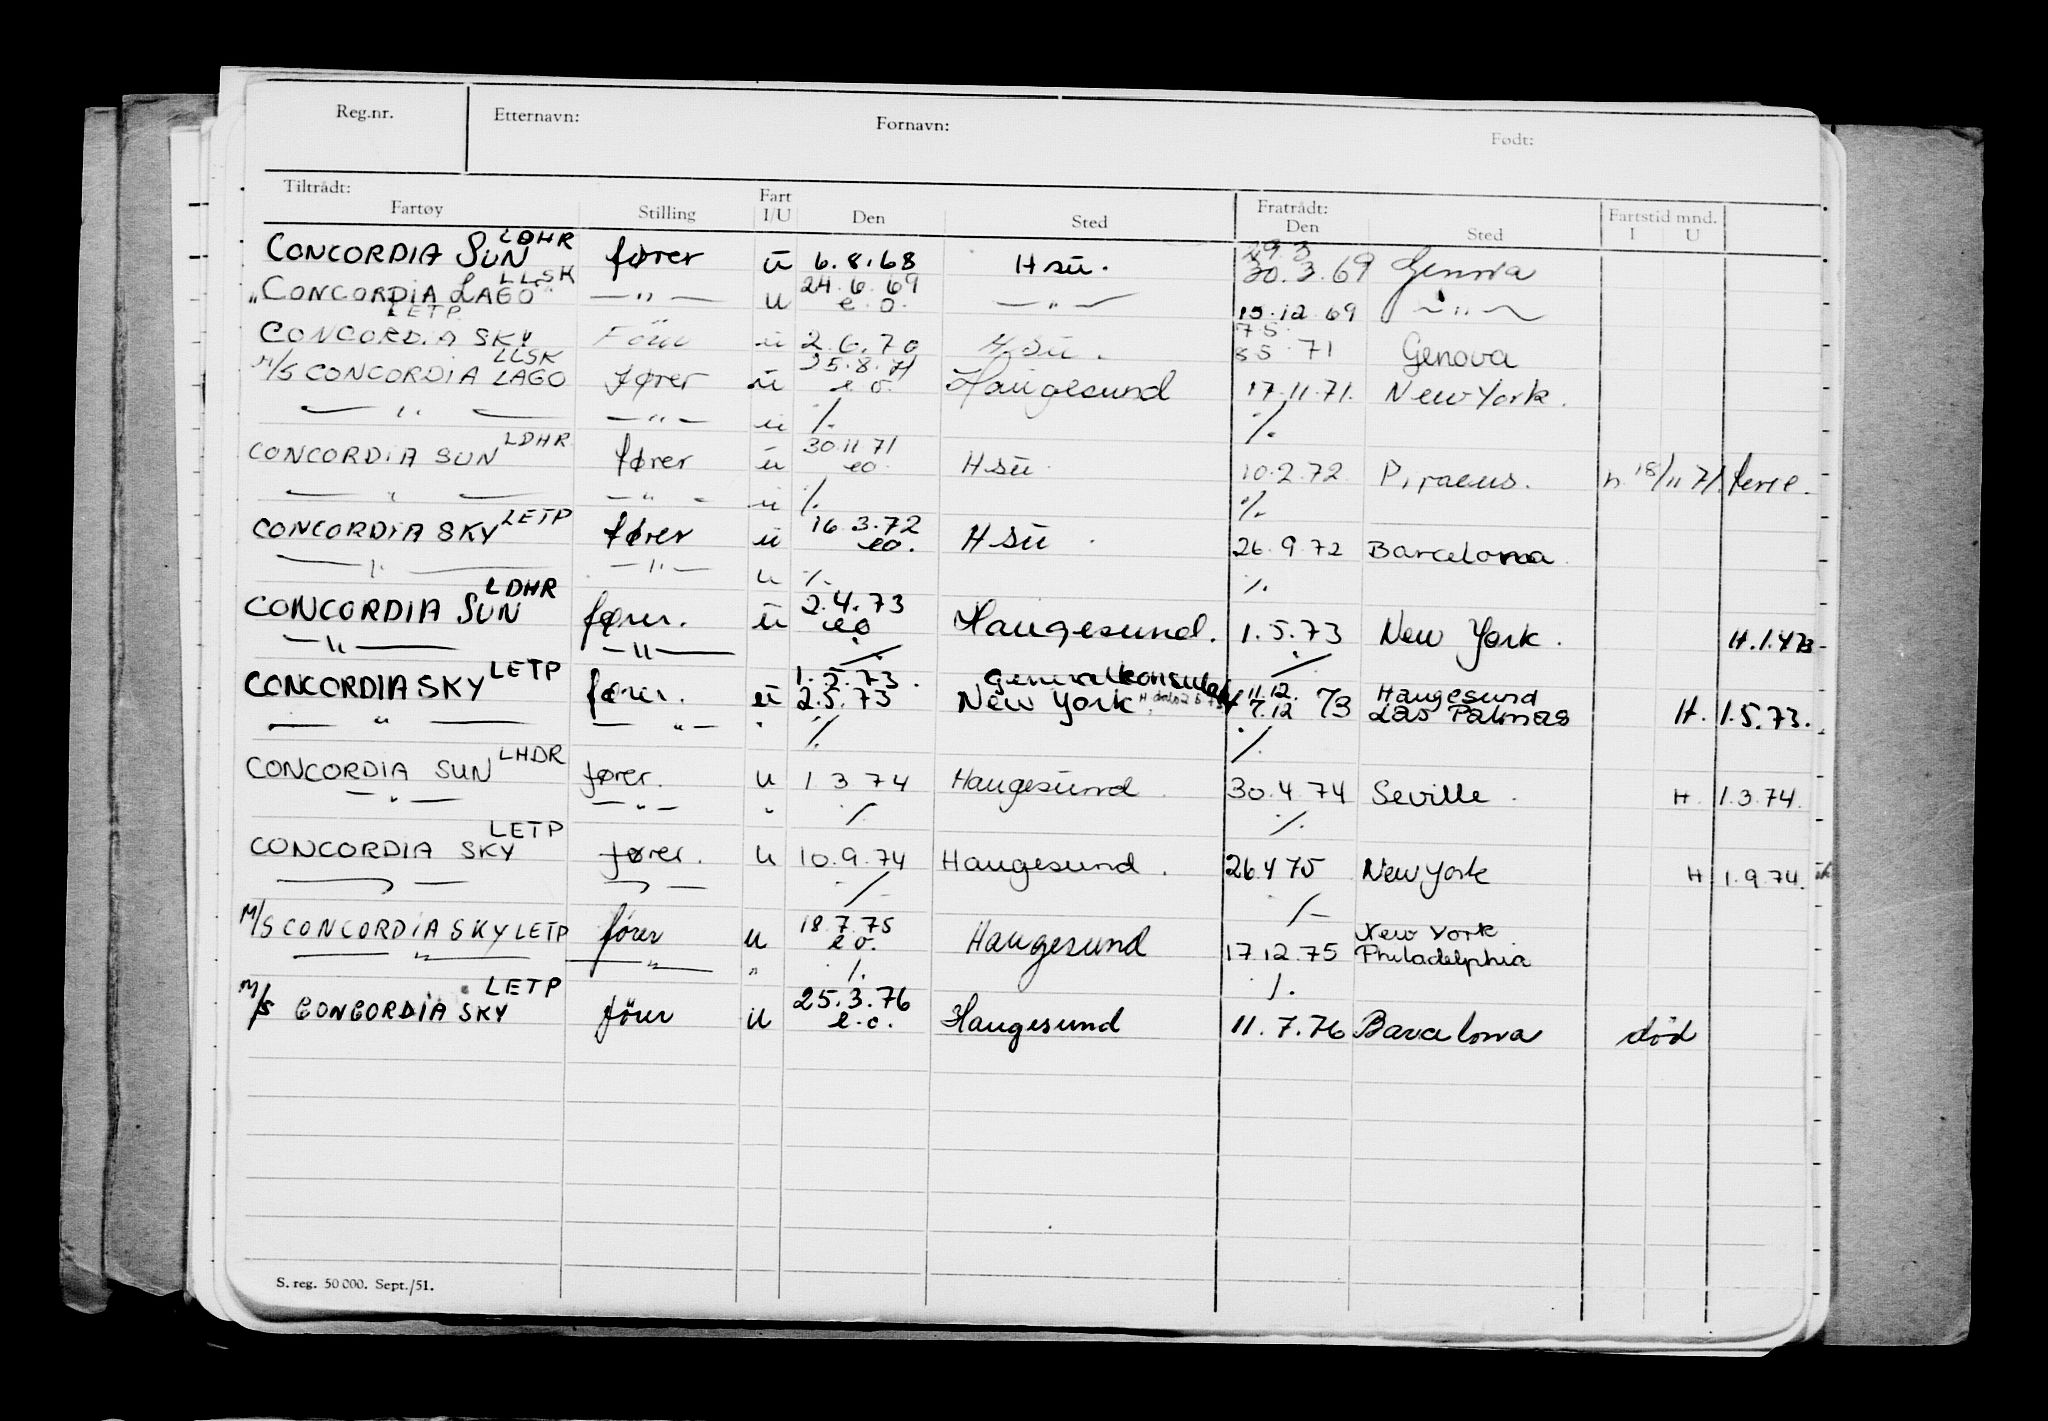 Reg.nr. Etternavn: Fornavn: Født:
Tiltrådt: Fratrådt:
Fartøy Stilling Fart I/U Den Sted Den Sted Fartstid mnd. I U
CONCORDIA SUN LDHR fører ū 6.8.68 H sū. 29.3 30.3.69 Genova
"CONCORDIA LAGO" LLSK —"— u 24.6.69 e.o. —"— 15.12.69 —"—
CONCORDIA SKY LETP Förer ū 2.6.70 H.Sū. 7 5. 71 Genova
M/S CONCORDIA LAGO LLSK fører ū 25.8.71 e o. Haugesund 17.11.71. New York.
—"— —"— ū ./. ./.
CONCORDIA SUN LDHR fører ū 30.11.71 eo. H sū 10.2.72. Piraeus. h. 18/11 71.
—"— —"— ū ./. ./.
CONCORDIA SKY LETP fører ū 16.3.72 eo. H sū. 26.9.72 Barcelona.
—"— —"— u ./. ./.
CONCORDIA SUN LDHR fører. ū 2.4.73 eo Haugesund. 1.5.73 New York. H.1.4.73
—"— —"— ./. ./.
CONCORDIA SKY LETP fører. ū 1.5.73. 2.5.73 Generalkonsulat New York 11.12. 7.12 73 Haugesund Las Palmas H. 1.5.73.
—"— —"— " ./. ./.
CONCORDIA SUN LHDR fører. u 1 3 74 Haugesund. 30.4.74 Seville. H. 1.3.74.
—"— —"— " ./. ./.
CONCORDIA SKY LETP fører. u 10.9.74 Haugesund. 26.4 75 New York H 1.9.74.
—"— —"— ./. ./.
M/S CONCORDIA SKY LETP förer u 18.7.75 e o. Haugesund 17.12.75 New York Philadelphia
—"— —"— " ./. ./.
M/S CONCORDIA SKY LETP förer u 25.3.76 e.o. Haugesund 11.7.76 Barcelona död
S. reg. 50 000. Sept./51.